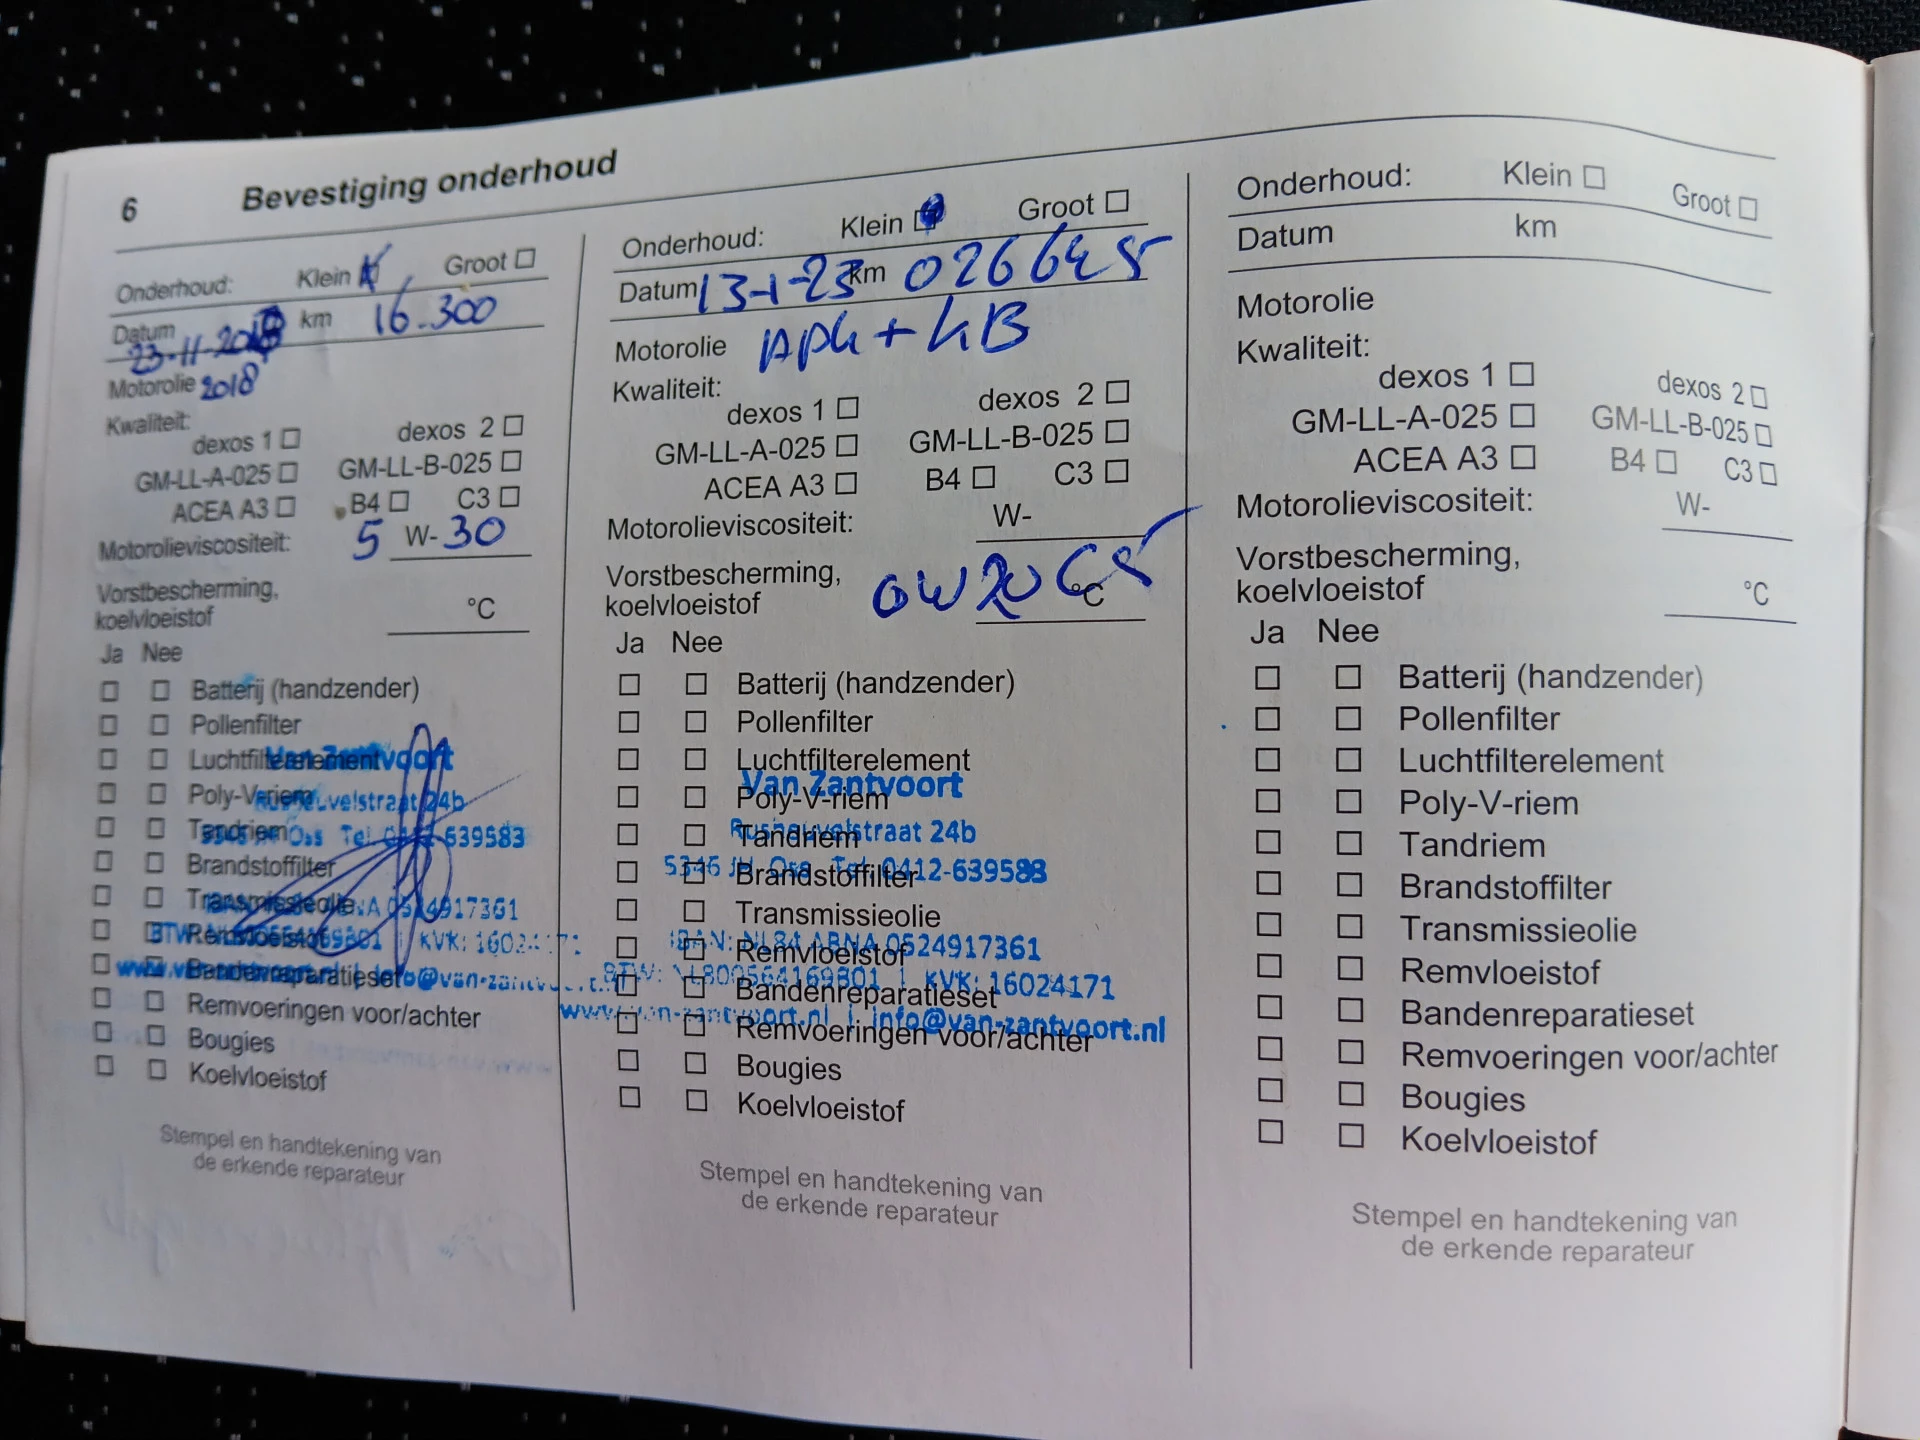 6 Bevestiging onderhoud
Onderhoud: Klein Groot
Datum 23-11-2018 km 16.300
Motorolie 2018
Kwaliteit:
dexos 1 dexos 2
GM-LL-A-025 GM-LL-B-025
ACEA A3 B4 C3
Motorolieviscositeit: 5 W-30
Vorstbescherming,
koelvloeistof °C
Ja Nee
Batterij (handzender)
Pollenfilter
Luchtfilterelement
Van Zantvoort
Poly-V-riem
24b
Tandriem
Oss Tel 639583
Brandstoffilter
Transmissieolie
0524917361
Remvloeistof
KVK:
Bandenreparatieset
Remvoeringen voor/achter
Bougies
Koelvloeistof
Stempel en handtekening van
de erkende reparateur
Onderhoud: Klein Groot
Datum 13-1-23 km 026645
Motorolie APK + KB
Kwaliteit:
dexos 1 dexos 2
GM-LL-A-025 GM-LL-B-025
ACEA A3 B4 C3
Motorolieviscositeit: W-
Vorstbescherming,
koelvloeistof 0W20 C5 °C
Ja Nee
Batterij (handzender)
Pollenfilter
Luchtfilterelement
Van Zantvoort
Poly-V-riem
Rusheuvelstraat 24b
Tandriem
5346 JH Oss Tel. 0412-639583
Brandstoffilter
Transmissieolie
IBAN: NL84 ABNA 0524917361
Remvloeistof
BTW: NL800564169B01 | KVK: 16024171
Bandenreparatieset
www.van-zantvoort.nl | info@van-zantvoort.nl
Remvoeringen voor/achter
Bougies
Koelvloeistof
Stempel en handtekening van
de erkende reparateur
Onderhoud: Klein Groot
Datum km
Motorolie
Kwaliteit:
dexos 1 dexos 2
GM-LL-A-025 GM-LL-B-025
ACEA A3 B4 C3
Motorolieviscositeit: W-
Vorstbescherming,
koelvloeistof °C
Ja Nee
Batterij (handzender)
Pollenfilter
Luchtfilterelement
Poly-V-riem
Tandriem
Brandstoffilter
Transmissieolie
Remvloeistof
Bandenreparatieset
Remvoeringen voor/achter
Bougies
Koelvloeistof
Stempel en handtekening van
de erkende reparateur